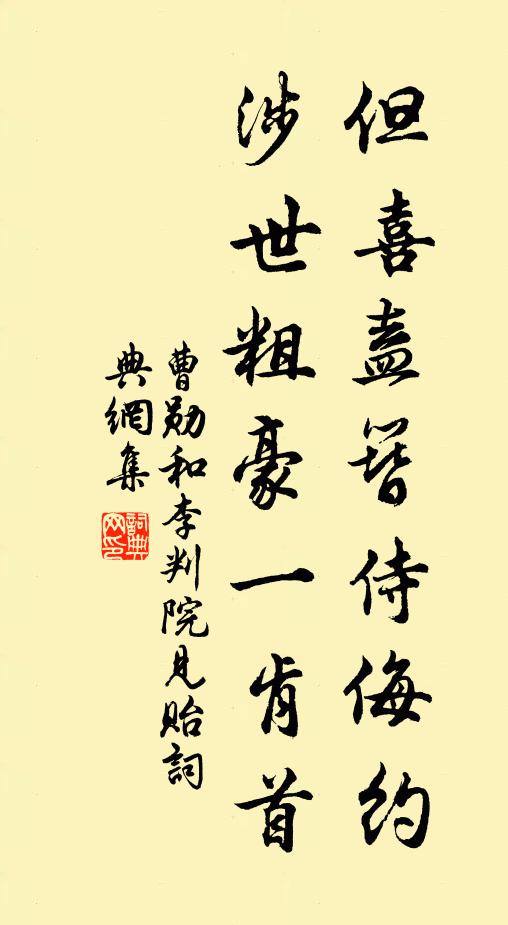 但喜盍簪侍侮約
涉世粗豪一肯首
曹勛和李判院見貽詞
典網集
詞典網印